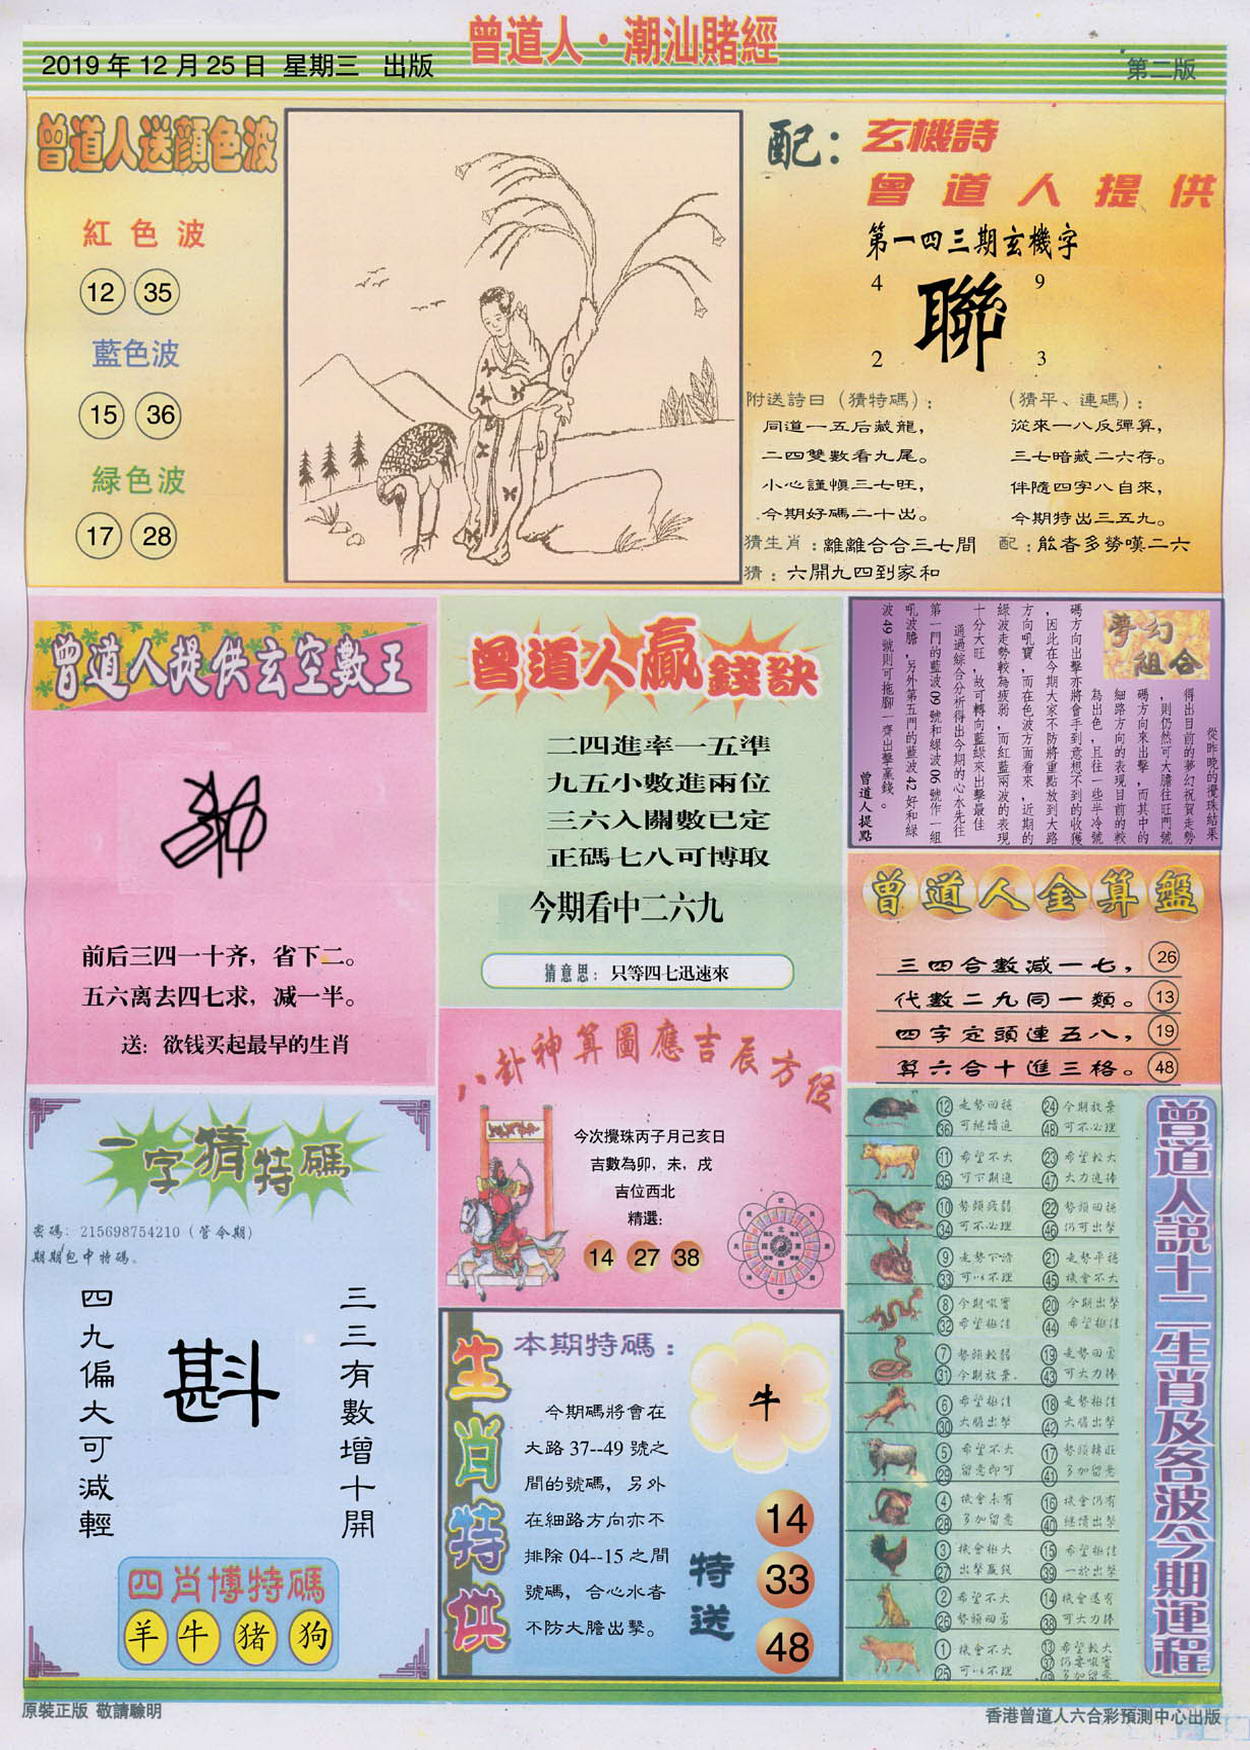 曾道人·潮汕賭經
2019年12月25日 星期三 出版
第二版
曾道人送顏色波
紅色波
12 35
藍色波
15 36
綠色波
17 28
配:玄機詩
曾道人提供
第一四三期玄機字
4 9
聯
2 3
附送詩曰(猜特碼):
同道一五后藏龍,
二四雙數看九尾。
小心謹慎三七旺,
今期好碼二十出。
(猜平、連碼):
從來一八反彈算,
三七暗藏二六存。
伴隨四字八自來,
今期特出三五九。
猜生肖:離離合合三七間
配:能者多勞嘆二六
猜:六開九四到家和
曾道人提供玄空數王
前后三四一十齐,省下二。
五六离去四七求,减一半。
送:欲钱买起最早的生肖
曾道人贏錢訣
二四進率一五準
九五小數進兩位
三六入關數已定
正碼七八可博取
今期看中二六九
猜意思:只等四七迅速來
夢幻組合
從昨晚的攪珠結果
得出目前的夢幻祝賀走勢
,則仍然可大膽往旺門號
碼方向來出擊,而其中的
細路方向的表現目前的較
為出色,且往一些半冷號
碼方向出擊亦將會手到意想不到的收獲
,因此在今期大家不防將重點放到大路
方向吼寶,而在色波方面看來,近期的
綠波走勢較為疲弱,而紅藍兩波的表現
十分大旺,故可轉向藍綠來出擊最佳
通過綜合分析得出今期的心水先往
第一門的藍波09號和綠波06號作一組
吼波膽,另外第五門的藍波42好和綠
波49號則可拖腳一齊出擊贏錢。
曾道人提點
曾道人金算盤
三四合數減一七, 26
代數二九同一類。 13
四字定頭連五八, 19
算六合十進三格。 48
八卦神算圖應吉辰方位
今次攪珠丙子月己亥日
吉數為卯,未,戌
吉位西北
精選:
14 27 38
一字猜特碼
密碼:215698754210(管令期)
期期包中特碼。
三三有數增十開
斟
四九偏大可減輕
四肖博特碼
羊 牛 猪 狗
生肖特供
本期特碼:
牛
今期碼將會在
大路37--49號之
間的號碼,另外
在細路方向亦不
排除04--15之間
號碼,合心水者
不防大膽出擊。
特送
14
33
48
曾道人說十二生肖及各波今期運程
12 走勢回穩 24 今期放棄
36 可繼續追 48 可不必理
11 希望不大 23 希望較大
35 可下期追 47 大力追捧
10 勢頭疲弱 22 勢頭回穩
34 可不必理 46 仍可出擊
9 走勢下滑 21 走勢平穩
33 可以不理 45 機會不大
8 今期吸寶 20 今期出擊
32 希望極佳 44 希望極佳
7 勢頭較弱 19 走勢回勇
31 今期放棄. 43 可大力捧
6 希望極佳 18 走勢極佳
30 大膽出擊 42 大膽出擊
5 希望不大 17 勢頭轉旺
29 留意即可 41 多加留意
4 機會未有 16 機會仍有
28 多加留意 40 繼續出擊
3 機會極大 15 希望極佳
27 出擊贏錢 39 一於出擊
2 希望不大 14 機會還有
26 勢頭回勇 38 可大力捧
1 機會不大 13 希望較大
25 可以不理 37 仍要吸寶
49 多加留意
原裝正版 敬請驗明
香港曾道人六合彩預測中心出版